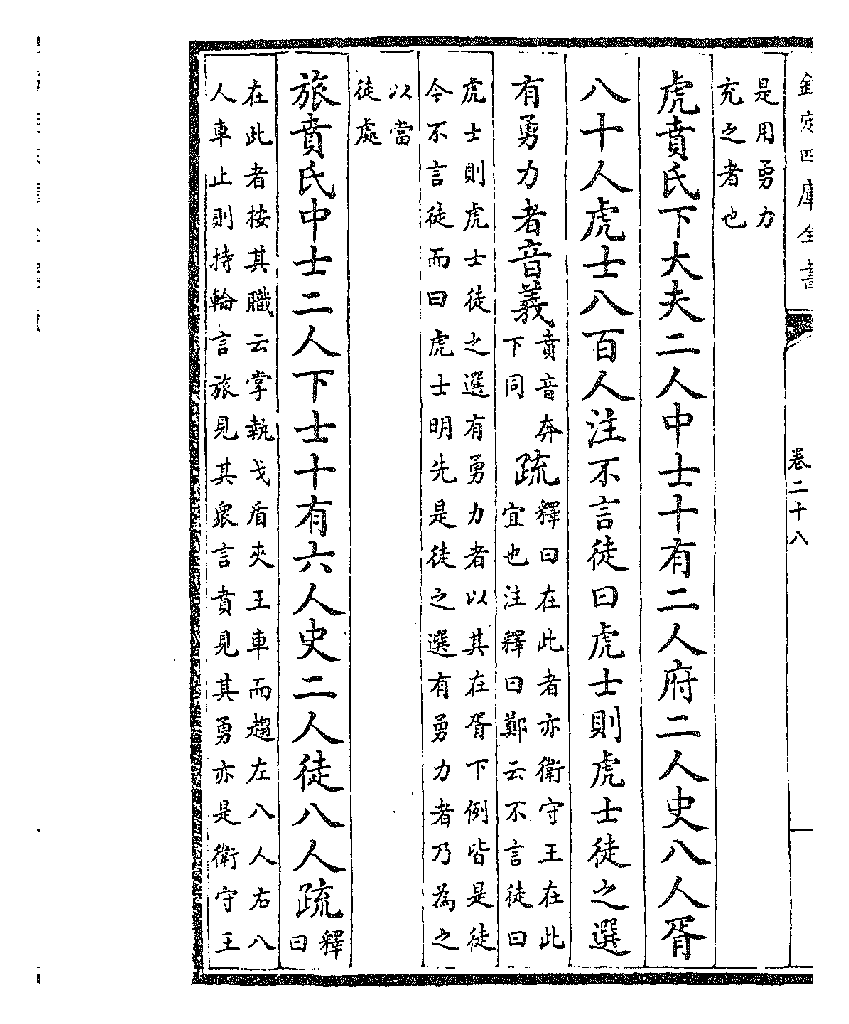 欽定四庫全書
卷二十八
是用勇力
充之者也
虎賁氏下大夫二人中士十有二人府二人史八人胥
八十人虎士八百人注不言徒曰虎士則虎士徒之選
有勇力者音義
賁音奔
下同
疏
釋曰在此者亦衛守王在此
宜也注釋曰鄭云不言徒曰
虎士則虎士徒之選有勇力者以其在胥下例皆是徒
今不言徒而曰虎士明先是徒之選有勇力者乃為之
以當
徒處
旅賁氏中士二人下士十有六人史二人徒八人疏
釋
曰
在此者按其職云掌執戈盾夾王車而趨左八人右八
人車止則持輪言旅見其衆言賁見其勇亦是衛守王